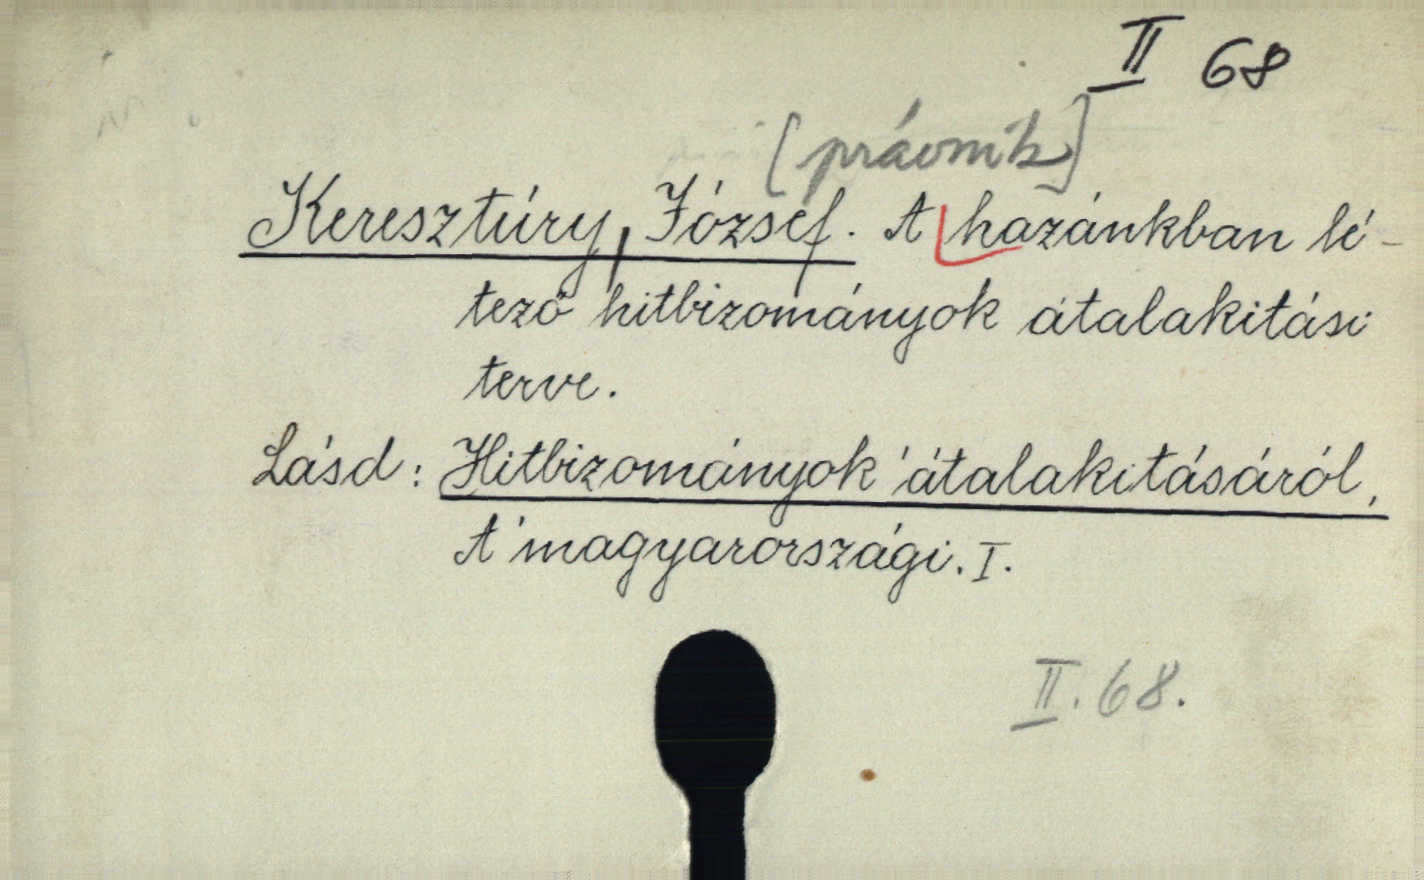 II 68
[právnik]
Keresztúry, József. A hazánkban lé-
tező hitbizományok átalakitási
terve.
Lásd: Hitbizományok átalakitásáról,
A magyarországi. I.
II. 68.